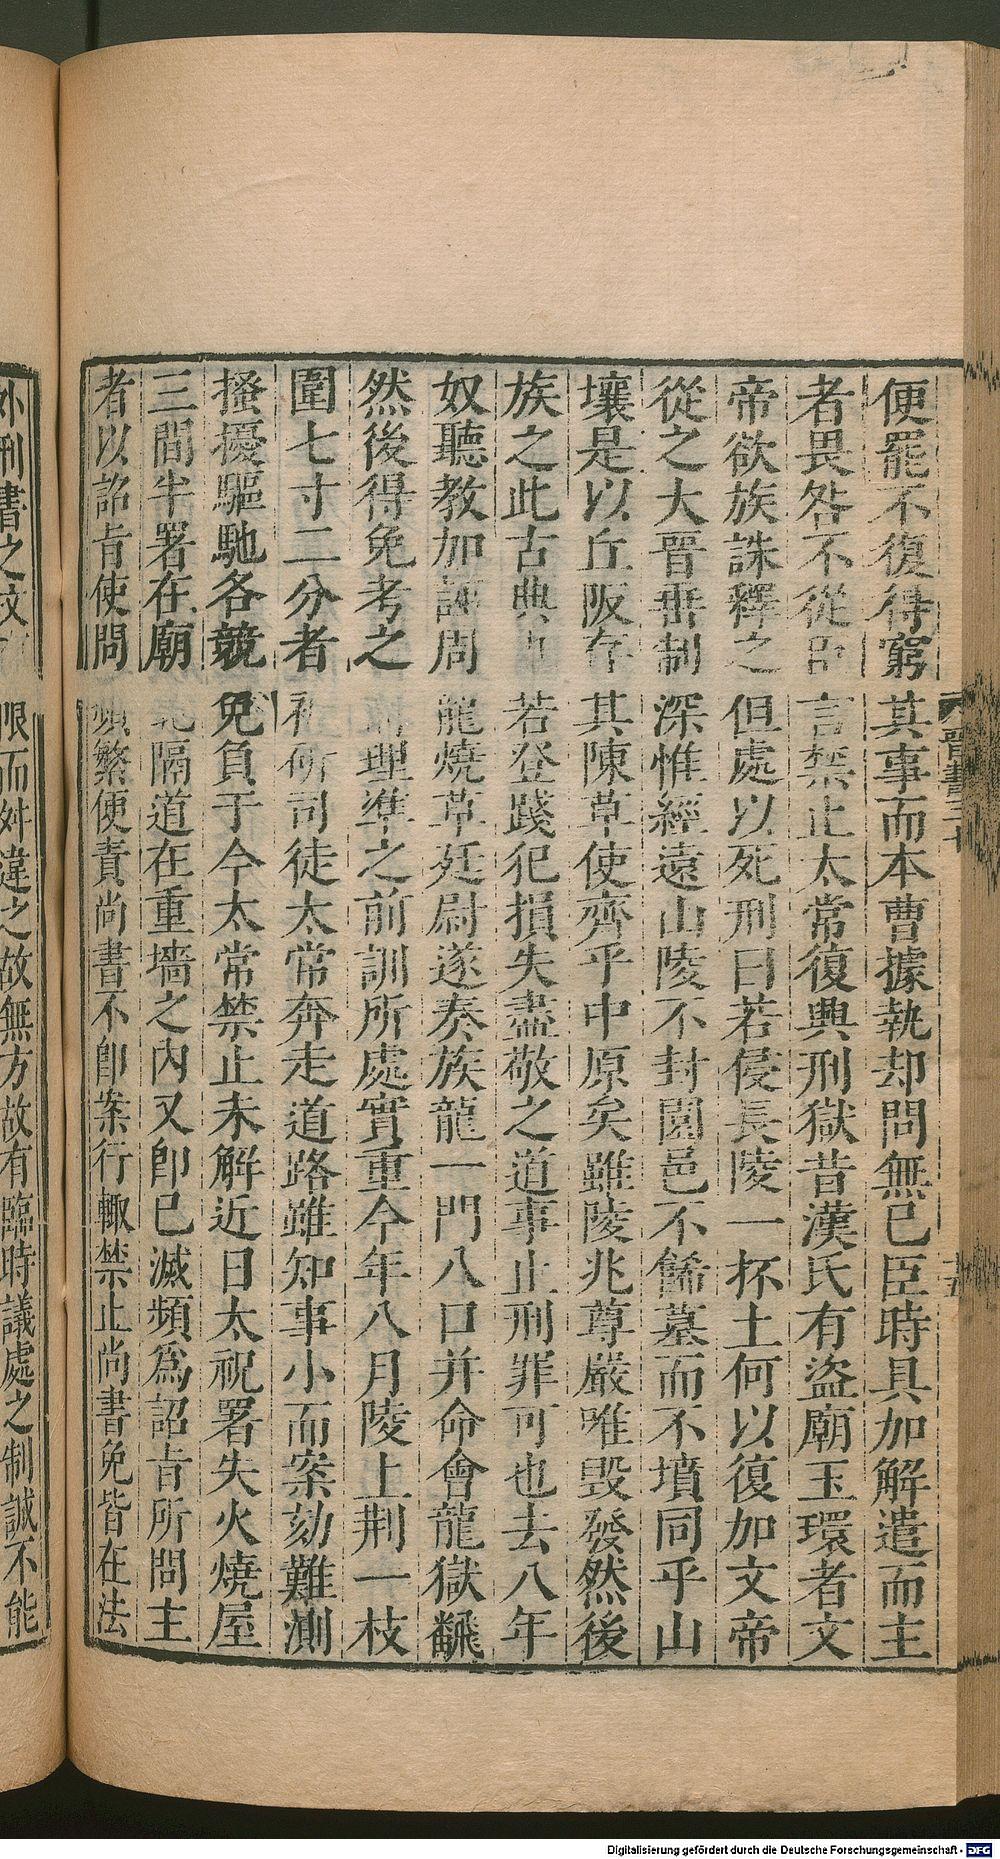 便罷不復得窮其事而本曹據執却問無已臣時具加解遣而主
者畏咎不從臣言禁止太常復興刑獄昔漢氏有盜廟玉環者文
帝欲族誅釋之但處以死刑曰若侵長陵一抔土何以復加文帝
從之大晉垂制深惟經遠山陵不封園邑不飾墓而不墳同乎山
壤是以丘阪存其陳草使齊乎中原矣雖陵兆尊嚴唯毀發然後
族之此古典也若登踐犯損失盡敬之道事止刑罪可也去八年
奴聽教加誣周龍燒草廷尉遂奏族龍一門八口并命會龍獄翻
然後得免考之情理準之前訓所處實重今年八月陵上荆一枝
圍七寸二分者被斫司徒太常奔走道路雖知事小而案劾難測
搔擾驅馳各競免負于今太常禁止未解近日太祝署失火燒屋
三間半署在廟北隔道在重墻之內又即已滅頻爲詔旨所問主
者以詔旨使問頻繁便責尚書不即案行輙禁止尚書免皆在法
晉書三十
十五
外刑書之文 限而舛違之故無方故有臨時議處之制誠不能
Digitalisierung gefördert durch die Deutsche Forschungsgemeinschaft - DFG